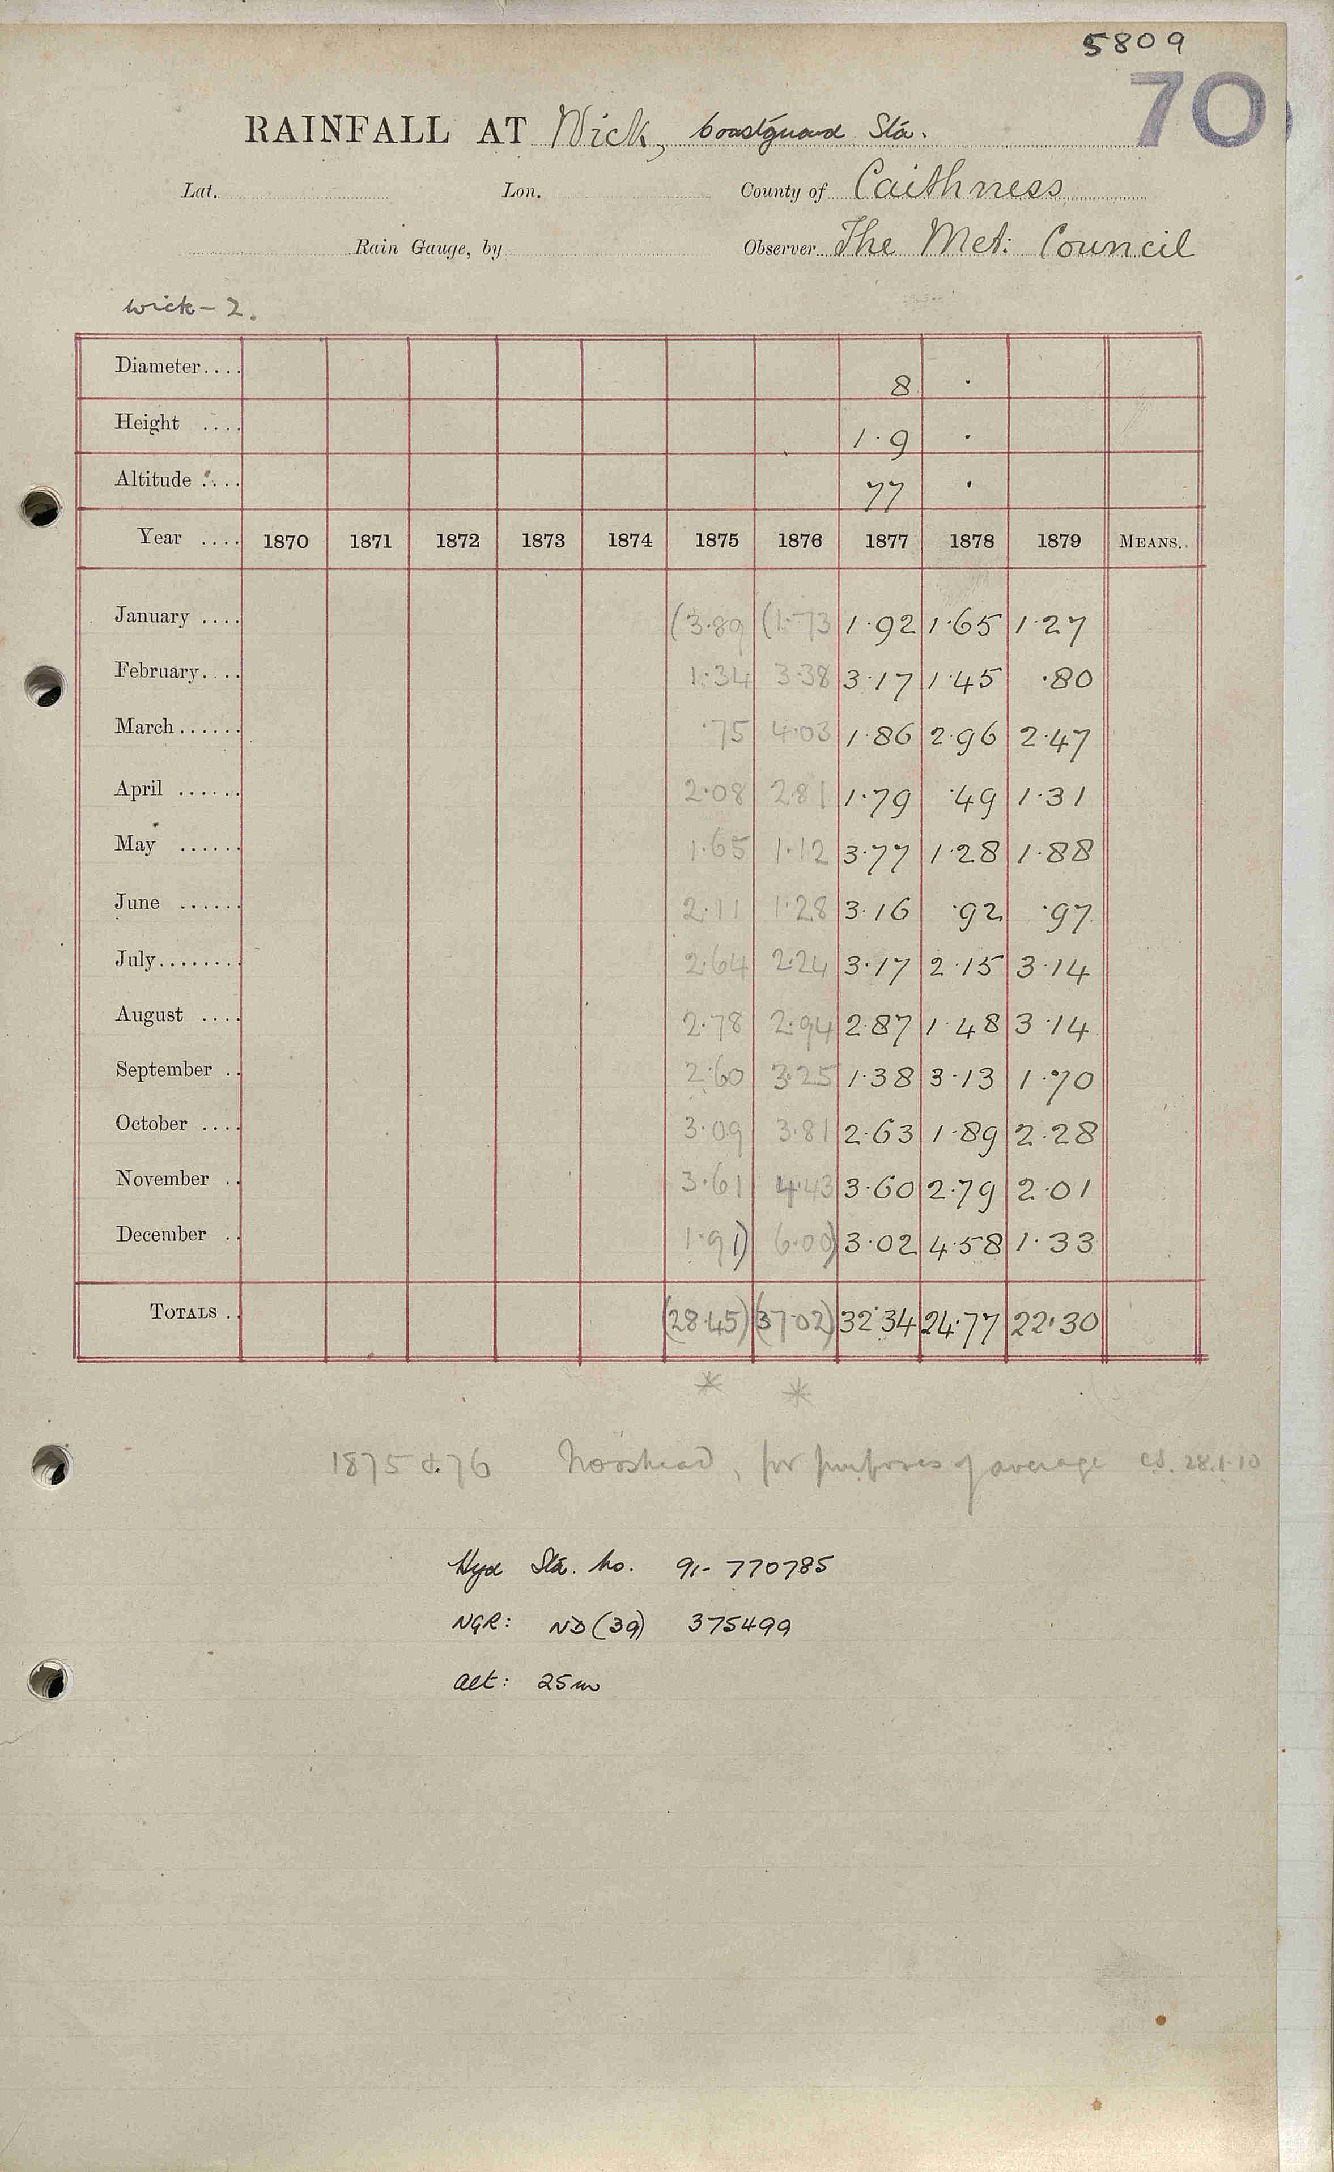 5809
70
RAINFALL AT Wick, Coastguard Sta.
Lat. Lon. County of Caithness
Rain Gauge, by Observer The Met: Council
Wick-2.
Diameter.... 8 ·
Height .... 1·9 ·
Altitude .... 77 ·
Year .... 1870 1871 1872 1873 1874 1875 1876 1877 1878 1879 MEANS..
January .... (3·89 (1·73 1·92 1·65 1·27
February.... 1·34 3·38 3·17 1·45 ·80
March...... ·75 4·03 1·86 2·96 2·47
April ...... 2·08 2·81 1·79 ·49 1·31
May ...... 1·65 1·12 3·77 1·28 1·88
June ...... 2·11 1·28 3·16 ·92 ·97
July........ 2·64 2·24 3·17 2·15 3·14
August .... 2·78 2·94 2·87 1·48 3·14
September .. 2·60 3·25 1·38 3·13 1·70
October .... 3·09 3·81 2·63 1·89 2·28
November .. 3·61 4·43 3·60 2·79 2·01
December .. 1·91) 6·00) 3·02 4·58 1·33
TOTALS .. (28·45) (37·02) 32·34 24·77 22·30
* *
1875 & 76 Nosshead, for purposes of average 28.1.10
Hyd Sta. No. 91- 770785
NGR: ND (39) 375499
Alt: 25m